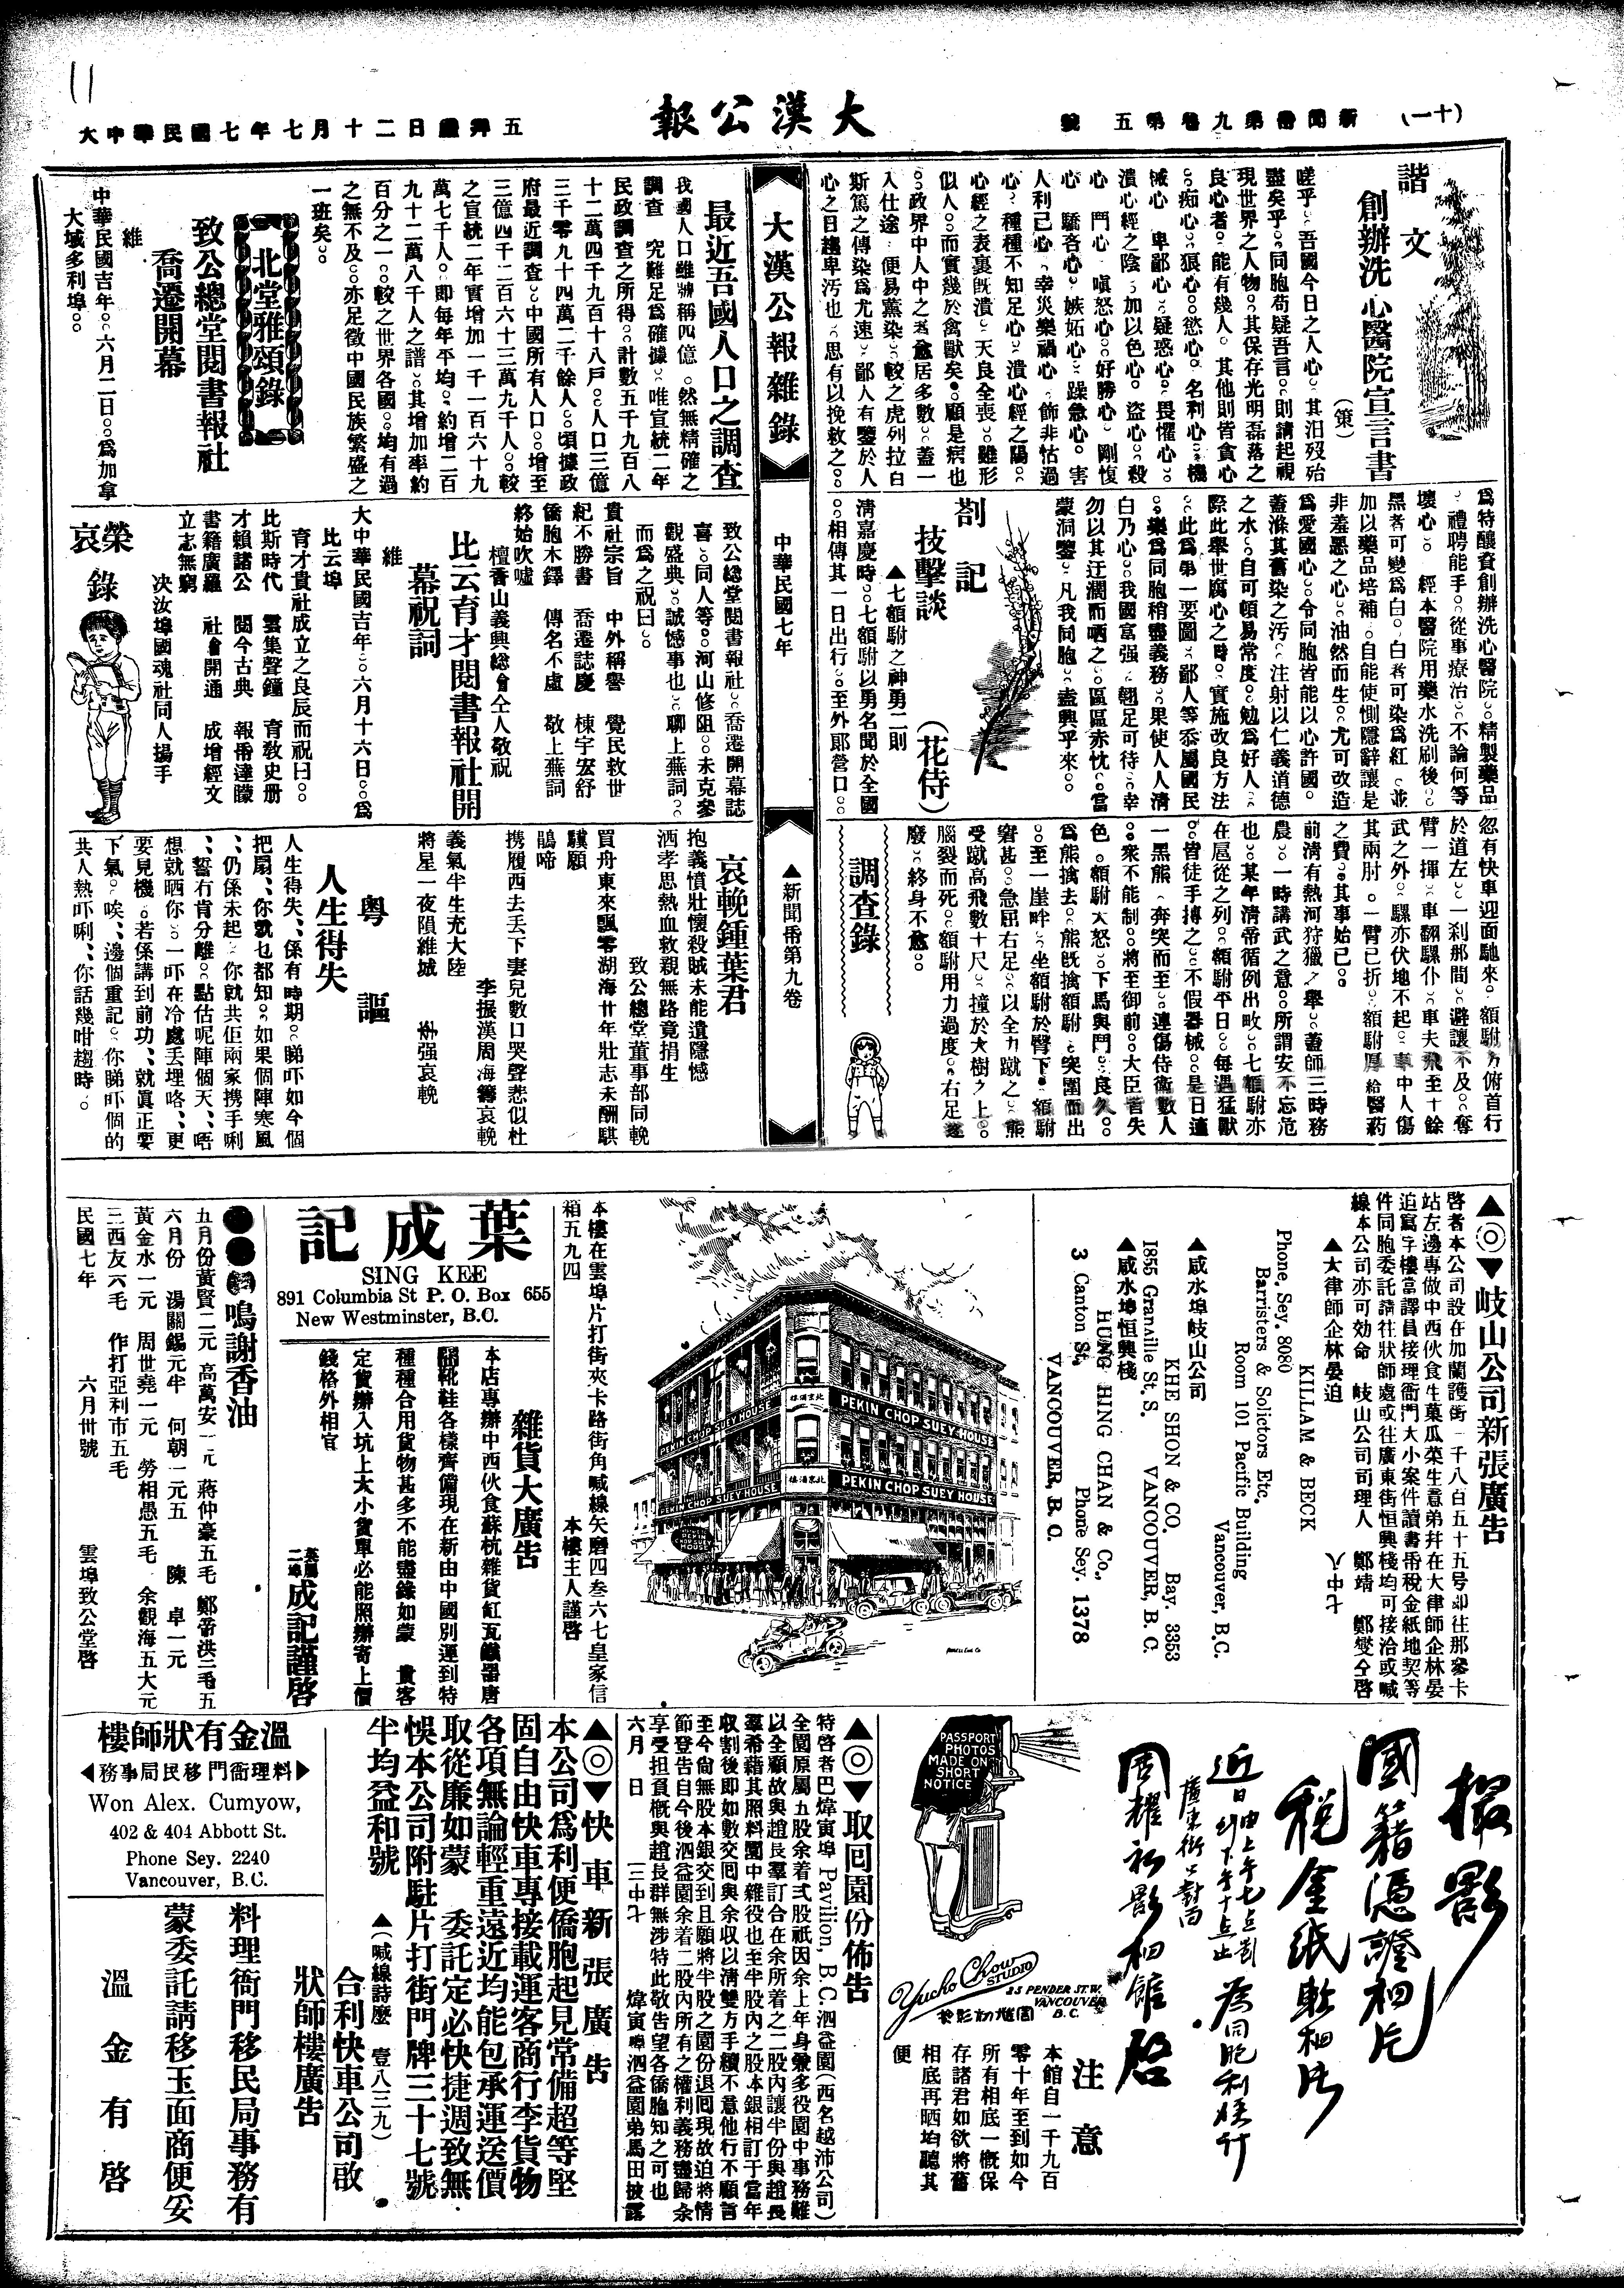 11
(一十)
新聞番第九卷第五號
大漢公報
大中華民國七年七月十二日禮拜五
諧文
創辦洗心醫院宣言書
(策)
嗟乎。吾國今日之人心。其汨歿殆
盡矣乎。同胞苟疑吾言。則請起視
現世界之人物。其保存光明磊落之
良心者。能有幾人。其他則皆貪心
。痴心。狠心。慾心。名利心。機
械心。卑鄙心。疑惑心。畏懼心。
潰心經之陰。加以色心。盜心。殺
心。鬥心。嗔怒心。好勝心。剛愎
心。驕吝心。嫉妬心。躁急心。害
人利己心。幸災樂禍心。飾非怙過
心。種種不知足心。潰心經之陽。
心經之表裏旣潰。天良全喪。雖形
似人。而實幾於禽獸矣。顧是病也
。政界中人中之者愈居多數。蓋一
入仕途。便易薰染。較之虎列拉白
斯篤之傳染爲尤速。鄙人有鑒於人
心之日趨卑汚也。思有以挽救之。
爲特釀資創辦洗心醫院。精製藥品
。禮聘能手。從事療治。不論何等
壞心。經本醫院用藥水洗刷後。
黑者可變爲白。白者可染爲紅。並
加以藥品培補。自能使惻隱辭讓是
非羞惡之心。油然而生。尤可改造
爲愛國心。令同胞皆能以心許國。
蓋滌其舊染之汚。注射以仁義道德
之水。自可頓易常度。勉爲好人。
際此舉世腐心之時。實施改良方法
。此爲第一要圖。鄙人等忝屬國民
。樂爲同胞稍盡義務。果使人人淸
白乃心。我國富强。翹足可待。幸
勿以其迂濶而哂之。區區赤忱。當
蒙洞鑒。凡我同胞。盍興乎來。
劄記
技擊談
(花侍)
▲七額駙之神勇二則
淸嘉慶時。七額駙以勇名聞於全國
。相傳其一日出行。至外郞營口。
忽有快車迎面馳來。額駙方俯首行
於道左。一刹那間。避讓不及。奪
臂一揮。車翻騾仆。車夫飛至十餘
武之外。騾亦伏地不起。車中人傷
其兩肘。一臂已折。額駙厚給醫葯
之費。其事始已。
前淸有熱河狩獵之舉。蓋師三時務
農。一時講武之意。所謂安不忘危
也。某年淸帝循例出畋。七額駙亦
在扈從之列。額駙平日。每遇猛獸
。皆徒手搏之。不假器械。是日適
一黑熊。奔突而至。連傷侍衛數人
。衆不能制。將至御前。大臣皆失
色。額駙大怒。下馬與鬥。良久。
爲熊擒去。熊旣擒額駙。突圍而出
。至一崖畔。坐額駙於臂下。額駙
窘甚。急屈右足。以全力蹴之。熊
受蹴高飛數十尺。撞於大樹之上。
腦裂而死。額駙用力過度。右足遂
廢。終身不愈。
調查錄
大漢公報雜錄
中華民國七年
▲新聞番第九卷
最近吾國人口之調查
我國人口雖號稱四億。然無精確之
調查。究難足爲確據。唯宣統二年
民政調查之所得。計數五千九百八
十二萬四千九百十八戶。人口三億
三千零九十四萬二千餘人。頃據政
府最近調查。中國所有人口。增至
三億四千二百六十三萬九千人。較
之宣統二年實增加一千一百六十九
萬七千人。即每年平均。約增二百
九十二萬八千人之譜。其增加率約
百分之一。較之世界各國。均有過
之無不及。亦足徵中國民族繁盛之
一班矣。
北堂雅頌錄
致公總堂閱書報社
喬遷開幕
維
中華民國吉年。六月二日。爲加拿
大域多利埠。
致公総堂閱書報社。喬遷開幕誌
喜。同人等。河山修阻。未克參
觀盛典。誠憾事也。聊上蕪詞。
而爲之祝曰。
貴社宗旨 中外稱譽 覺民救世
紀不勝書 喬遷誌慶 棟宇宏舒
僑胞木鐸 傳名不虛 敬上蕪詞
終始吹噓
檀香山義興総會仝人敬祝
比云育才閱書報社開
幕祝詞
維
大中華民國吉年。六月十六日。爲
比云埠
育才貴社成立之良辰而祝曰。
比斯時代 雲集聲鐘 育敎史册
才賴諸公 閱今古典 報番達矇
書籍廣羅 社會開通 成增經文
立志無窮
決汝埠國魂社同人揚手
榮哀錄
哀輓鍾葉君
抱義憤壯懷殺賊未能遺隱憾
洒孝思熱血敦親無路竟捐生
致公總堂董事部同輓
買舟東來飄零湖海廿年壯志未酬騏
驥願
携履西去丟下妻兒數口哭聲悲似杜
鵑啼
李振漢周海籌哀輓
義氣半生充大陸
將星一夜隕維城
强哀輓
粤謳
人生得失
人生得失、係有時期。睇吓如今個
把扇、你就乜都知。如果個陣寒風
、仍係未起。你就共佢兩家携手唎
、誓冇肯分離。點估呢陣個天、唔
想就晒你。一吓在冷處丟埋咯、更
要見機。若係講到前功、就眞正要
下氣。唉、邊個重記。你睇吓個的
共人熱吓唎、你話幾咁趨時。
▲◎▼岐山公司新張廣告
啓者本公司設在加蘭護街一千八百五十五号卽往那參卡
站左邊專做中西伙食生菓瓜菜生意弟幷在大律師企林晏
追寫字樓當譯員接理衙門大小案件讀書番稅金紙地契等
件同胞委託請往狀師處或往廣東街恒興棧均可接洽或喊
線本公司亦可効命 岐山公司司理人 鄭靖 鄭燮仝啓
▲大律師企林晏迫
八中七
KILLAM & BECK
Phone, Sey. 8080
Barristers & Solictors Etc.
Room 101 Pacific Building
Vancouver, B.C.
▲咸水埠岐山公司
KHE SHON & CO. Bay. 3353
1855 Granville St. S. VANCOUVER, B. C.
▲咸水埠恒興棧
HUNG HING CHAN & Co.,
3 Canton St, Phone Sey. 1378
VANCOUVER, B. C.
北京酒樓
PEKIN CHOP SUEY HOUSE
PEKIN CHOP SUEY HOUSE
北京酒樓
PEKIN CHOP SUEY HOUSE
PEKIN CHOP SUEY HOUSE
本樓在雲埠片打街夾卡路街角喊線矢磨四叁六七皇家信
箱五九四 本樓主人謹啓
葉成記
SING KEE
891 Columbia St P. O. Box 655
New Westminster, B.C.
雜貨大廣吿
本店專辦中西伙食蘇杭雜貨缸瓦鐵器唐
靴鞋各樣齊備現在新由中國別運到特
種種合用貨物甚多不能盡錄如蒙 貴客
定貨辦入坑上大小貨單必能照辦寄上價
錢格外相宜
英屬二埠成記謹啓
鳴謝香油
五月份黃賢二元 高萬安一元 蔣仲豪五毛 鄭帝洪二毛五
六月份 湯關錫元半 何朝一元五 陳卓一元
黃金水一元 周世堯一元 勞相愚五毛 余觀海五大元
三西友六毛 作打亞利市五毛
民國七年 六月卅號 雲埠致公堂啓
撮影
國籍憑證相片
稅金紙軟相片
近日由上午七点到下午十点止
爲同胞利便行
廣東街公對面
周耀初影相館啓
PASSPORT
PHOTOS
MADE ON
SHORT
NOTICE
Yucho Chow
STUDIO
23 PENDER ST. W.
VANCOUVER
B. C.
周耀初影於
注意
本館自一千九百
零十年至到如今
所有相底一概保
存諸君如欲將舊
相底再晒均聽其
便
▲◎▼取囘園份佈告
特啓者巴煒寅埠Pavilion, B.C.泗益園(西名越沛公司)
全園原屬五股余着弍股祇因余上年身兼多役園中事務難
以全顧故與趙長羣訂合在余所着之二股內讓半份與趙長
羣希藉其照料園中雜役也至半股內之股本銀相訂于當年
收割後即如數交囘與余收以淸雙方手續不意他行不願言
至今尙無股本銀交到且願將半股之園份退囘現故迫將情
節登告自今後泗益園余着二股內所有之權利義務盡歸余
享受担負槪與趙長群無涉特此敬告望各僑胞知之可也
六月 日 三中七 煒寅埠泗益園弟馬田披露
▲◎▼快車新張廣告
本公司爲利便僑胞起見常備超等堅
固自由快車專接載運客商行李貨物
各項無論輕重遠近均能包承運送價
取從廉如蒙 委託定必快捷週致無
悞本公司附駐片打街門牌三十七號
半均益和號 ▲(喊線詩麼 壹八三九)
合利快車公司啟
溫金有狀師樓
◀料理衙門移民局事務▶
Won Alex. Cumyow,
402 & 404 Abbott St.
Phone Sey. 2240
Vancouver, B.C.
狀師樓廣告
料理衙門移民局事務有
蒙委託請移玉面商便妥
溫金有啓